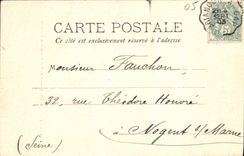 05
CARTE POSTALE
Ce côté est exclusivement réservé à l'adresse
Monsieur Fauchon
32, rue Théodore Honoré
à Nogent s/ Marne
(Seine)